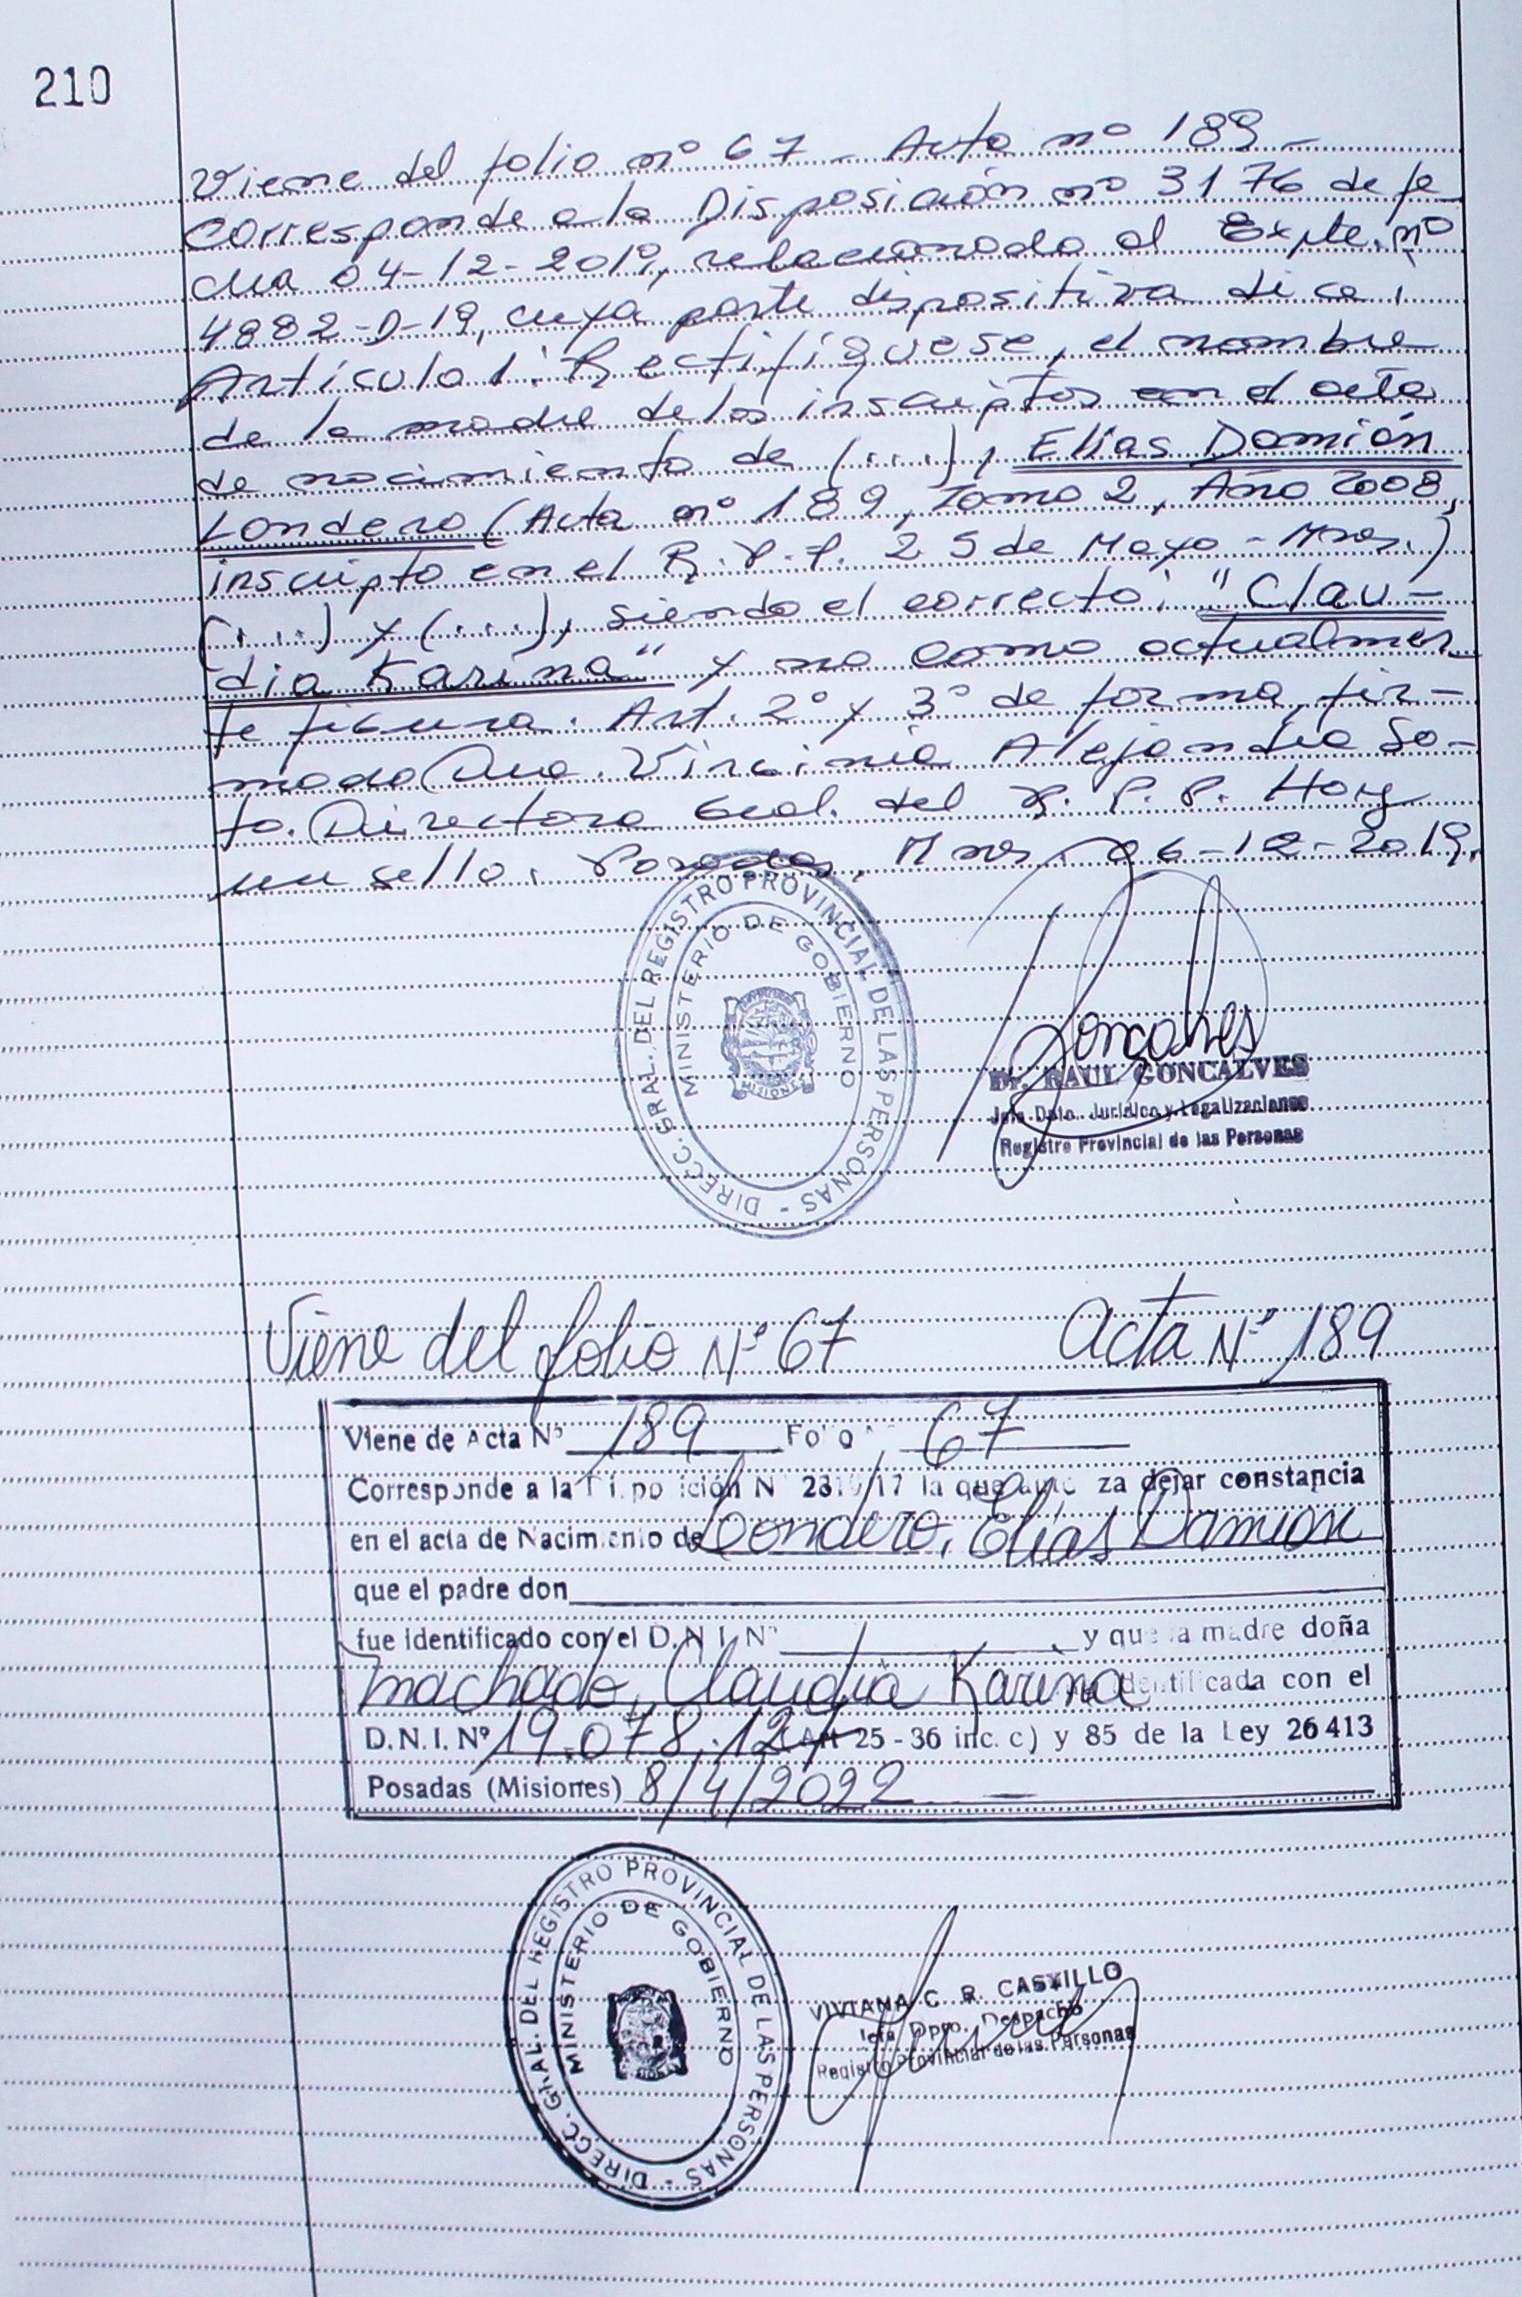 210
Viene del folio nº 67 - Acta nº 189 -
Corresponde a la Disposición nº 3176 de fe
cha 04-12-2019, relacionada al Expte. nº
4882-D-19, cuya parte dispositiva dice:
Artículo 1: Rectifíquese, el nombre
de la madre de los inscriptos en el acta
de nacimiento de (...), Elías Damián
Londero (Acta nº 189, Tomo 2, Año 2008,
inscripto en el R.P.P. 25 de Mayo - Mnes.)
(...) y (...), siendo el correcto: "Clau-
dia Karina" y no como actualmen
te figura. Art. 2º y 3º de forma, fir-
mado Dra. Virginia Alejandra So-
to. Directora Gral. del R.P.P. Hay
un sello. Posadas, Mnes. 06-12-2019.
DIRECC. GRAL. DEL REGISTRO PROVINCIAL DE LAS PERSONAS -
MINISTERIO DE GOBIERNO
Goncalves
Dr. RAUL GONCALVES
Jefe Dpto. Jurídico y Legalizaciones
Registro Provincial de las Personas
Viene del folio Nº 67 Acta Nº 189
Viene de Acta Nº 189 Folio 67
Corresponde a la Disposición N /17 la que autoriza dejar constancia
en el acta de Nacimiento de Londero, Elías Damian
que el padre don
fue identificado con el D.N.I. Nº y que la madre doña
Machado, Claudia Karina identificada con el
D.N.I. Nº 19.078.127 Art 25 - 36 inc. c) y 85 de la Ley 26413
Posadas (Misiones) 8/4/2022
DIRECC. GRAL. DEL REGISTRO PROVINCIAL DE LAS PERSONAS -
MINISTERIO DE GOBIERNO
VIVIANA C. R. CASTILLO
Jefa Dpto. Despacho
Registro Provincial de las Personas